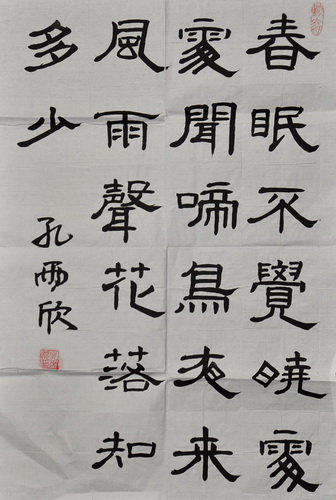 春眠不覺曉處
處聞啼鳥夜来
風雨聲花落知
多少
孔雨欣